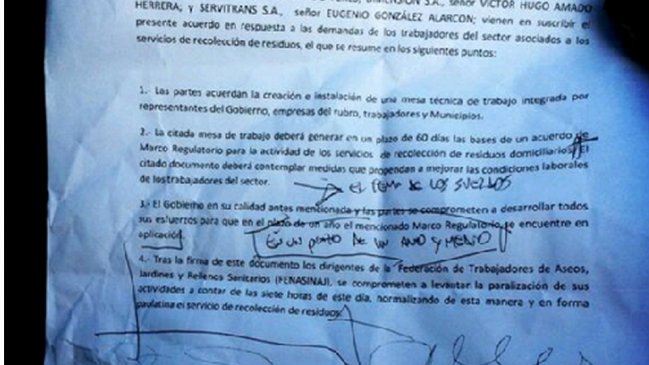 DIMENSION S.A., señor VICTOR HUGO AMADO
HERRERA; y SERVITRANS S.A., señor EUGENIO GONZÁLEZ ALARCON; vienen en suscribir el
presente acuerdo en respuesta a las demandas de los trabajadores del sector asociados a los
servicios de recolección de residuos, el que se resume en los siguientes puntos:
1.- Las partes acuerdan la creación e instalación de una mesa técnica de trabajo integrada por
representantes del Gobierno, empresas del rubro, trabajadores y Municipios.
2.- La citada mesa de trabajo deberá generar en un plazo de 60 días las bases de un acuerdo de
Marco Regulatorio para la actividad de los servicios de recolección de residuos domiciliarios. El
citado documento deberá contemplar medidas que propendan a mejorar las condiciones laborales
de los trabajadores del sector.
EL DE LOS SUELDOS
3.- El Gobierno en su calidad antes mencionada y las partes se comprometen a desarrollar todos
sus esfuerzos para que en el plazo de un año el mencionado Marco Regulatorio, se encuentre en
aplicación.
EN UN PLAZO DE UN AÑO Y MEDIO
4.- Tras la firma de este documento los dirigentes de la Federación de Trabajadores de Aseos,
Jardines y Rellenos Sanitarios (FENASINAJ), se comprometen a levantar la paralización de sus
actividades a contar de las siete horas de este día, normalizando de esta manera y en forma
paulatina el servicio de recolección de residuos.